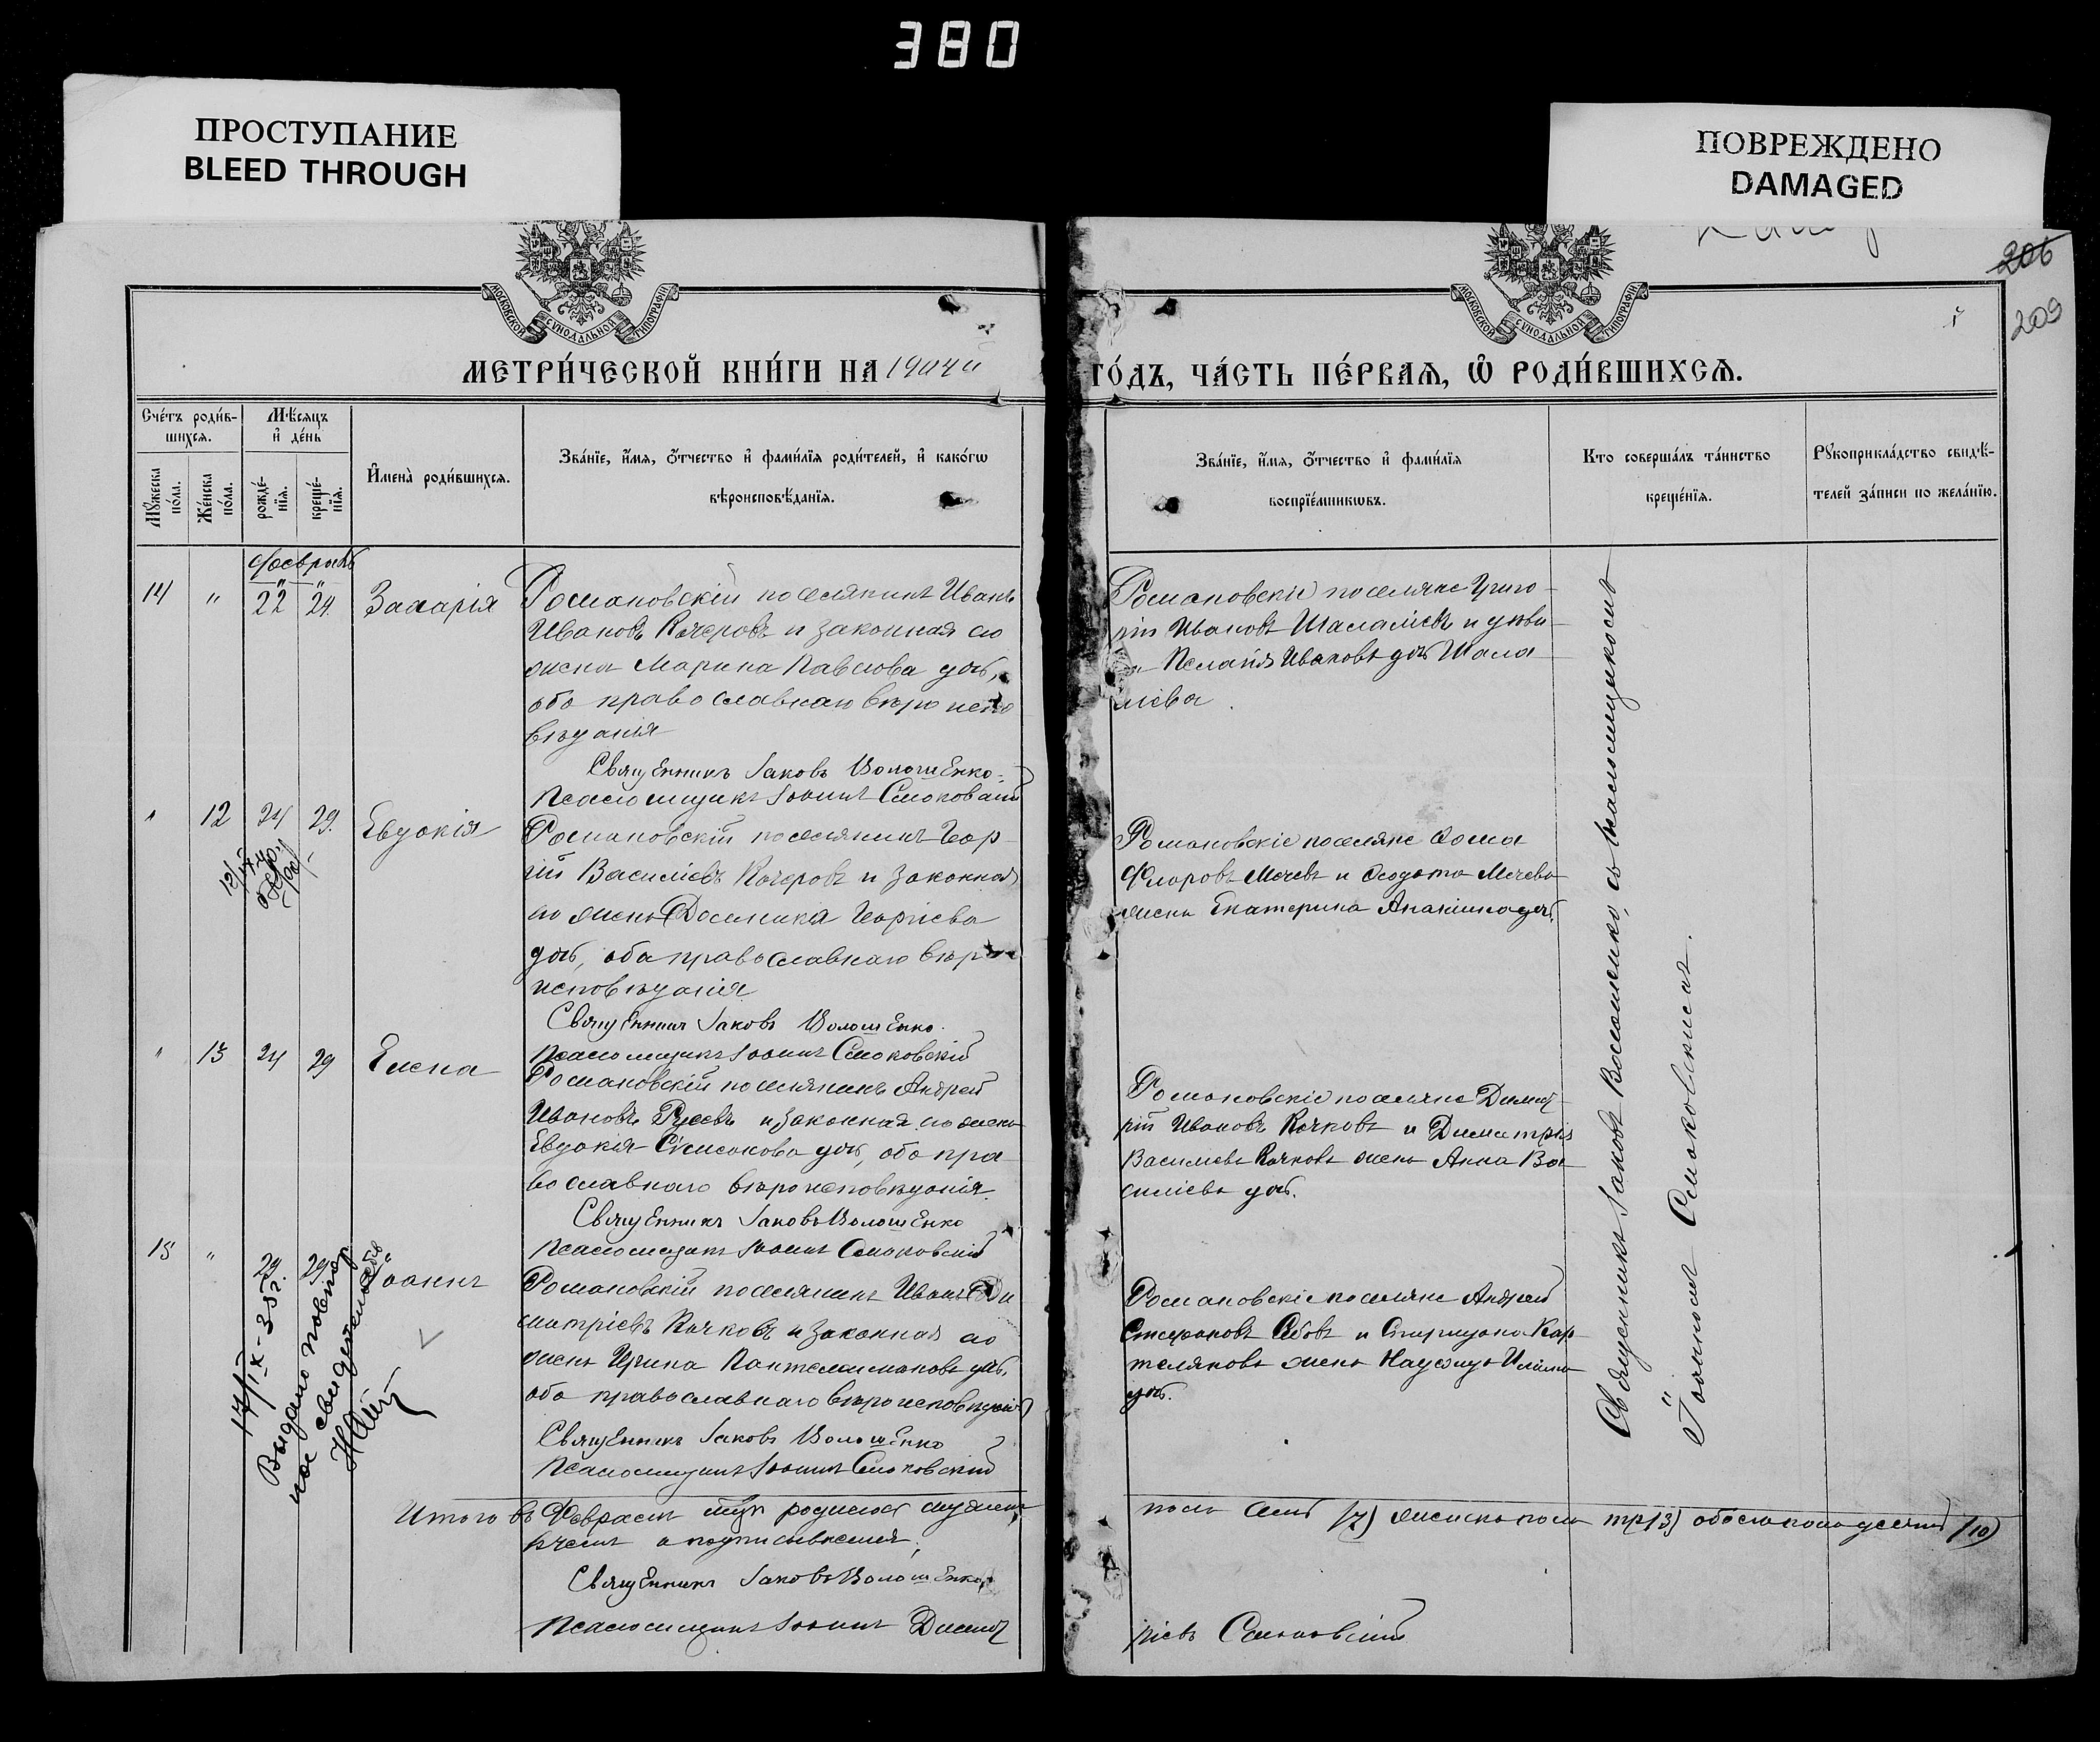 380
ПРОСТУПАНИЕ
BLEED THROUGH
ПОВРЕЖДЕНО
DAMAGED
206
209
МОСКОВСКОЙ СѴНОДАЛЬНОЙ ТИПОГРАФІИ
МОСКОВСКОЙ СѴНОДАЛЬНОЙ ТИПОГРАФІИ
МЕТРИ́ЧЕСКОЙ КНИ́ГИ НА 1904й
ГО́ДЪ, ЧА́СТЬ ПЕ́РВАѦ, Ѡ҆ РОДИ́ВШИХСѦ.
Сче́тъ роди́в-
шихсѧ.
Мꙋ́жеска по́ла.
Же́нска по́ла.
Мѣ́сѧцъ
и҆ де́нь
рожде́-
нїѧ.
креще́-
нїѧ.
И҆мена̀ роди́вшихсѧ.
Зва́нїе, и҆́мѧ, ѻ҆́тчество и҆ фами́лїѧ роди́телей, и҆ како́гѡ
вѣроисповѣ́данїѧ.
Зва́нїе, и҆́мѧ, ѻ҆́тчество и҆ фами́лїѧ
воспрїе́мникѡвъ.
Кто соверша́лъ та́инство
креще́нїѧ.
Рꙋкоприкла́дство свидѣ́-
телей за́писи по жела́нїю.
Февраль
14 " 22 24 Захарія
Романовскій поселянинъ Иванъ
Ивановъ Кочеровъ и законная его
жена Марина Павлова дочь,
оба православнаго вѣроиспо
вѣданія
Священникъ Іаковъ Волошенко
Псаломщикъ Іоаннъ Смоковскій
Романовскіе поселяне Григо-
рій Ивановъ и
Пелагія Иванова дочь
" 12 24 29 Евдокія
Романовскій поселянинъ Геор-
гій Василіевъ Кочеровъ и законная
его жена Доминика Георгіева
дочь, оба православнаго вѣро
исповѣданія
Священникъ Іаковъ Волошенко
Псаломщикъ Іоаннъ Смоковскій
Романовскіе поселяне Фома
Флоровъ Мечевъ и Феодота Мечева
жена Екатерина дочь
" 13 24 29 Елена
Романовскій поселянинъ Андрей
Ивановъ Русевъ и законная его жена
Евдокія Симеонова дочь, оба пра
вославнаго вѣроисповѣданія
Священникъ Іаковъ Волошенко
Псаломщикъ Іоаннъ Смоковскій
Романовскіе поселяне Димит-
рій Ивановъ Кочковъ и Димитрія
Василіева Кочкова жена Анна Ва
силіева дочь.
15 " 29 29 Іоаннъ
Романовскій поселянинъ Иванъ Ди
митріевъ Кочковъ и законная его
жена Ирина Пантелеимонова дочь,
оба православнаго вѣроисповѣданія
Священникъ Іаковъ Волошенко
Псаломщикъ Іоаннъ Смоковскій
Романовскіе поселяне Андрей
Стефановъ и Спиридона Кар-
жена дочь.
17/IX-35г.
Выдано повтор
ное свидетельство
Священникъ Іаковъ Волошенко, съ псаломщикомъ
Іоанномъ Смоковскимъ.
Итого въ Февралѣ м-цѣ родилось мужеска
пола семь (7) женска пола три (3) обоего пола десять (10)
въ чемъ и подписываемся,
Священникъ Іаковъ Волошенко
Псаломщикъ Іоаннъ Димит
ріевъ Смоковскій